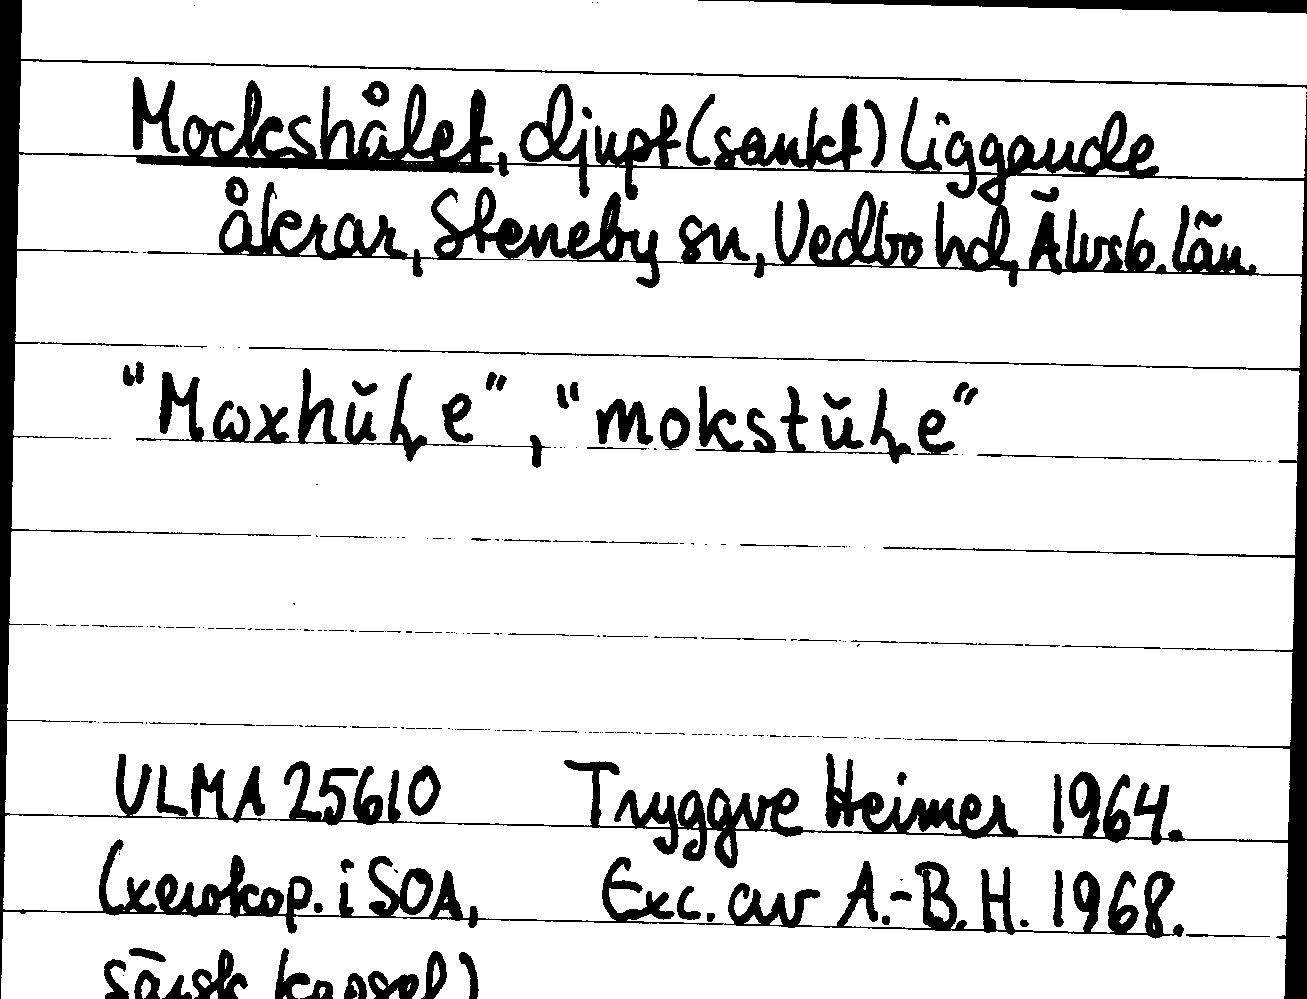 Mockshålet, djupt (sankt) liggande
åkrar, Steneby sn, Vedbo hd, Älvsb. län.
"Mωxhŭꞎe", "mokstŭꞎe"
ULMA 25610 Tryggve Heimer 1964.
(xerokop. i SOA, Exc. av A.-B. H. 1968.
särsk kapsel)